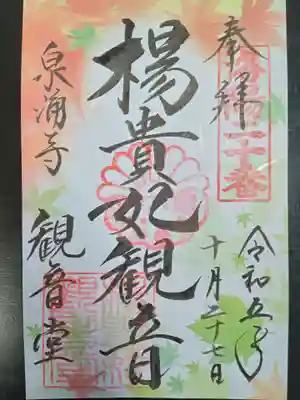 奉拝
二十番
令和五年
十月二十七日
楊貴妃観音
泉涌寺
観音堂